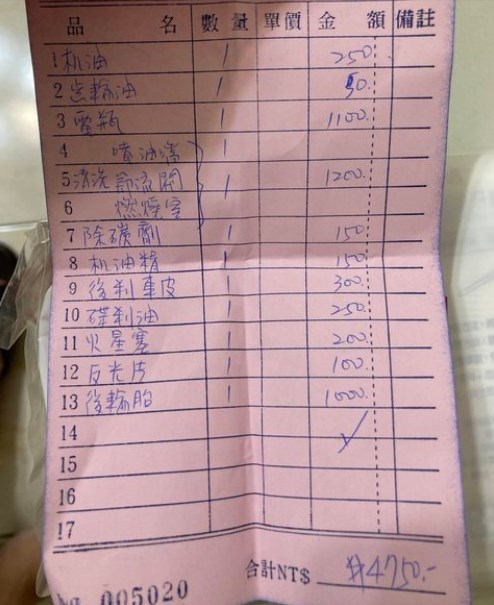 品名 數量 單價 金額 備註
1 机油 1 250
2 齿輪油 1 50.
3 電瓶 1 1100.
4 噴油嘴 1
5 清洗 節流閥 1 1200.
6 燃燒室
7 除碳劑 1 150
8 机油精 1 150
9 後刹車皮 1 300.
10 碟刹油 1 250.
11 火星塞 1 200.
12 反光片 1 100.
13 後輪胎 1 1000.
14
15
16
17
合計NT$ #4750.-
No 005020